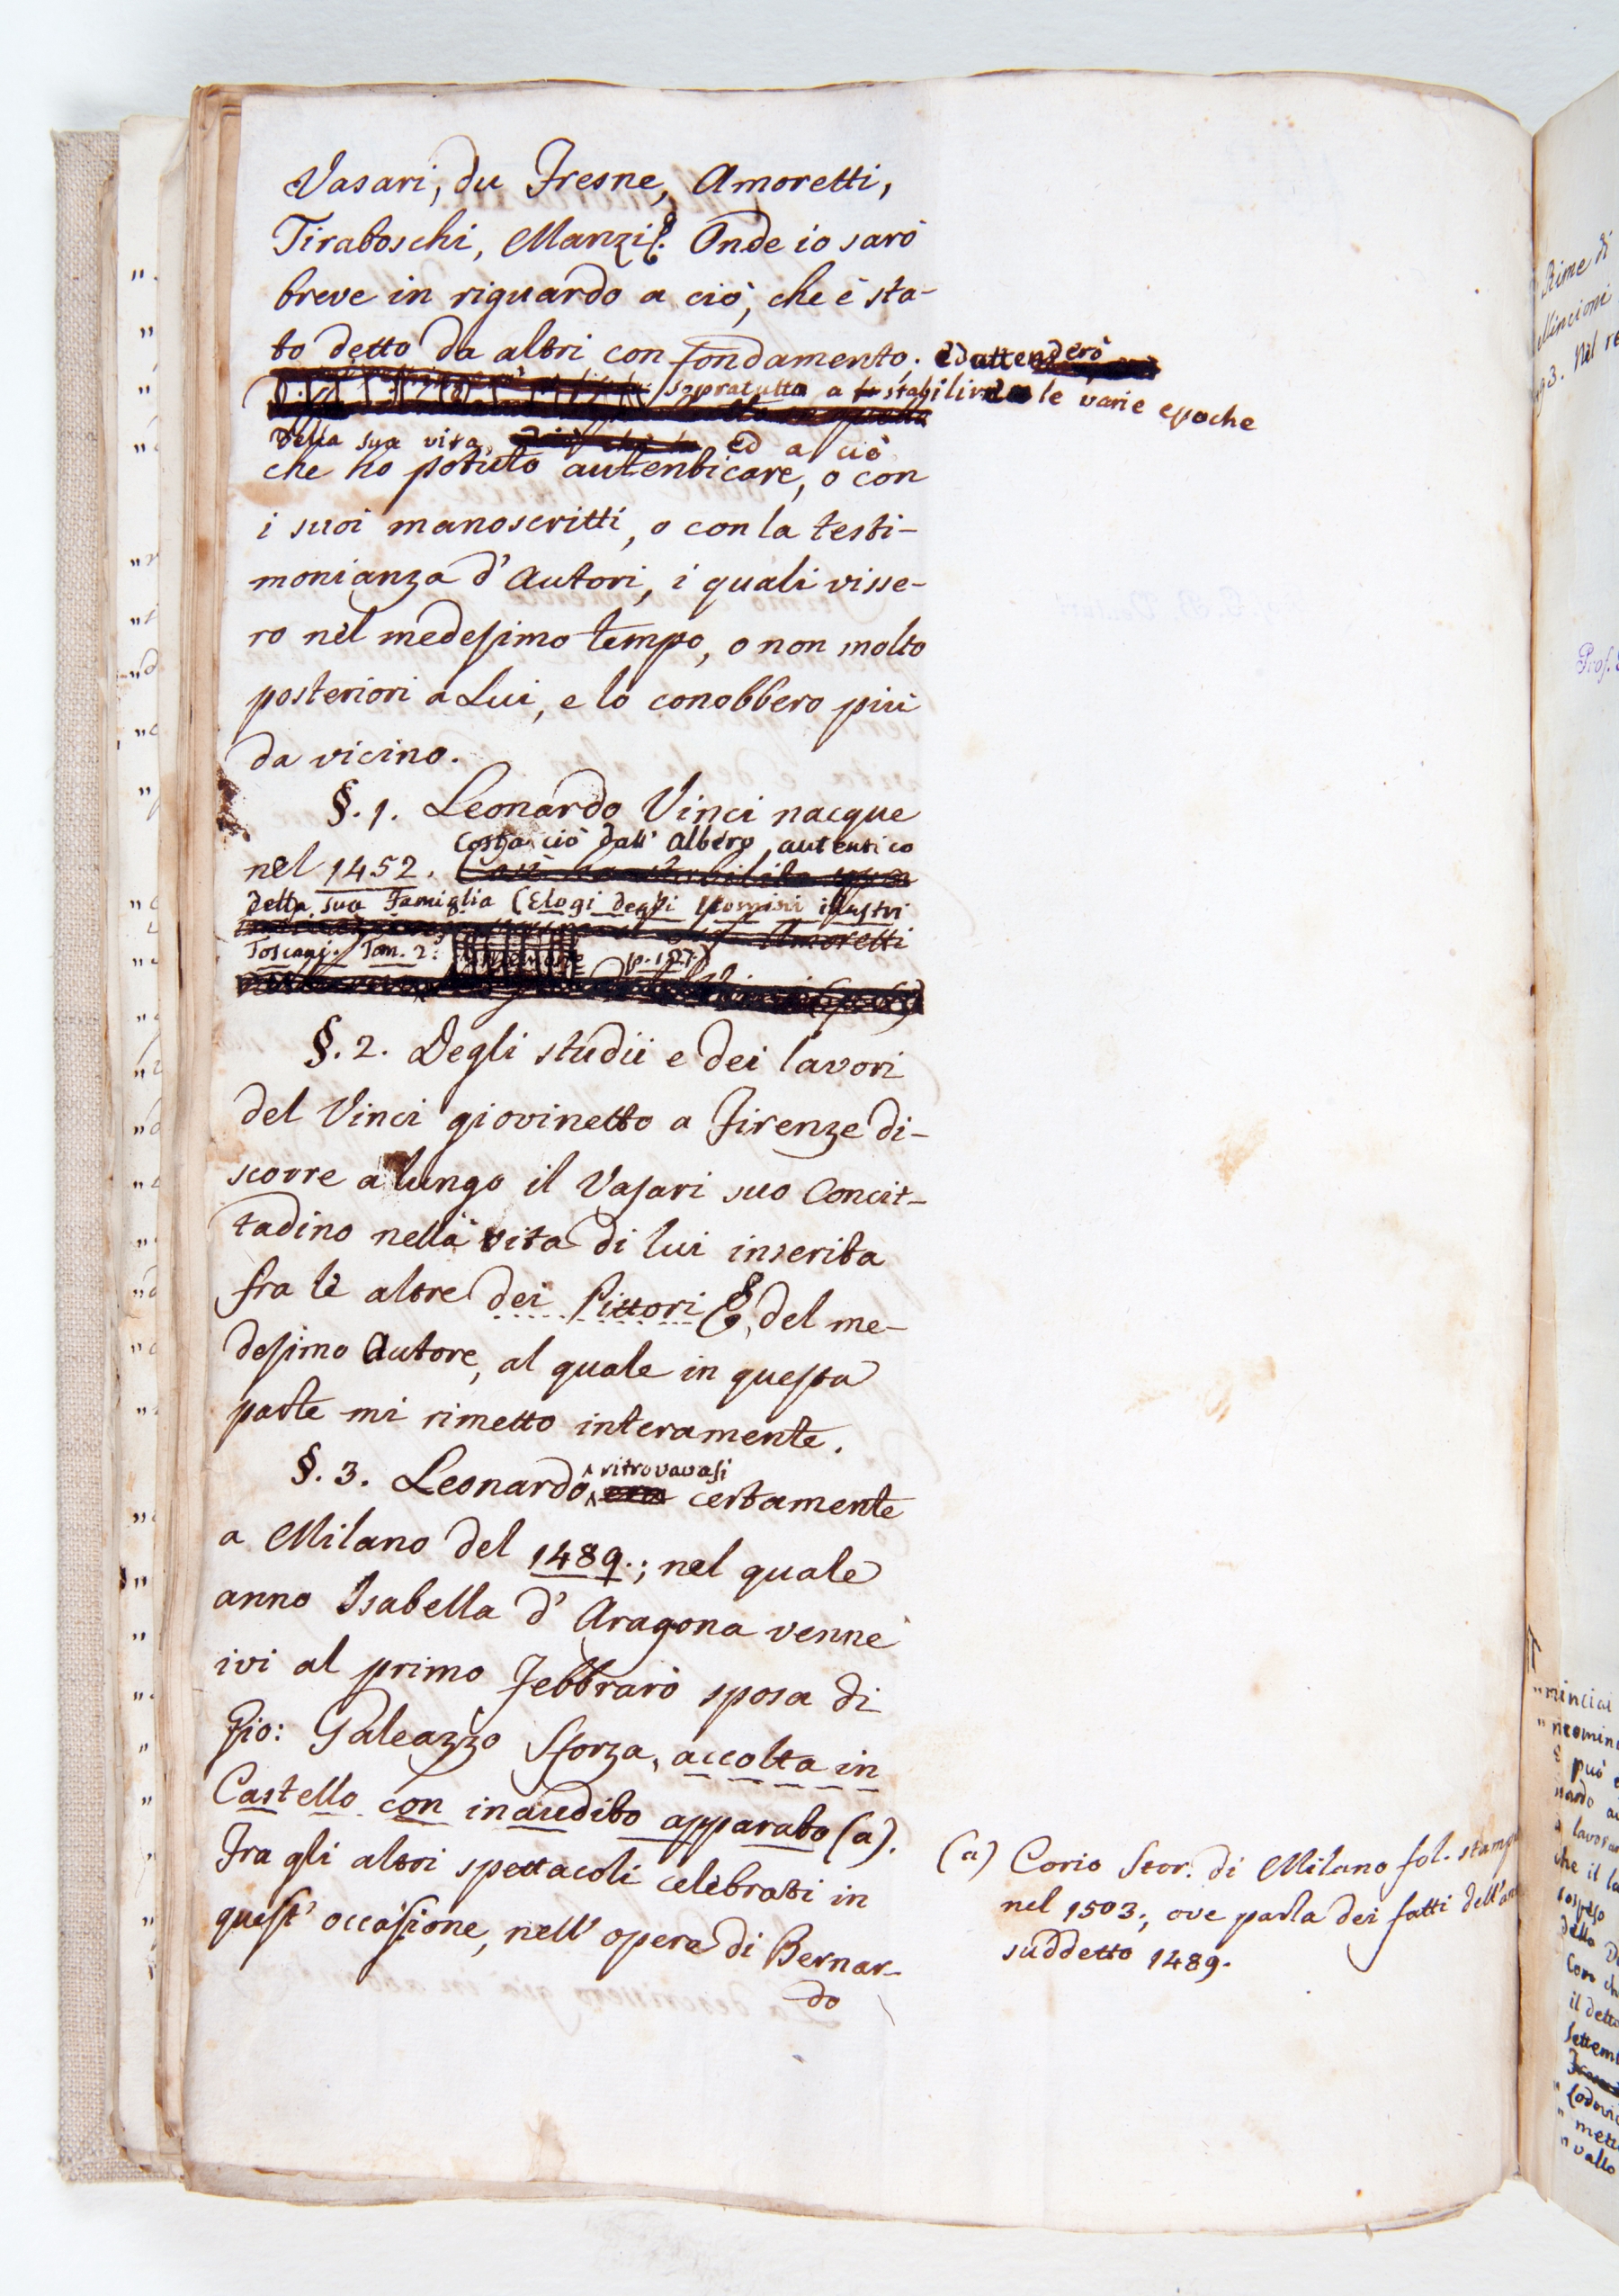 Vasari, du Fresne, Amoretti,
Tiraboschi, Manzi &. Onde io sarò
breve in riguardo a ciò, che è sta-
to detto da altri con fondamento. ed attenderò
sopratutto a stabilire le varie epoche
della sua vita, ed a ciò
che ho potuto autenticare, o con
i suoi manoscritti, o con la testi-
monianza d'Autori, i quali visse-
ro nel medesimo tempo, o non molto
posteriori a Lui, e lo conobbero più
da vicino.
§. 1. Leonardo Vinci nacque
Costa ciò dall' Albero autentico
nel 1452.
della sua Famiglia (Elogi degli Uomini illustri
Amoretti
Toscani. Tom. 2:
§. 2. Degli studii e dei lavori
del Vinci giovinetto a Firenze di-
scorre a lungo il Vasari suo Concit-
tadino nella vita di lui inserita
fra le altre dei Pittori &, del me-
desimo Autore, al quale in questa
parte mi rimetto interamente.
§. 3. Leonardo ritrovavasi certamente
a Milano del 1489.; nel quale
anno Isabella d'Aragona venne
ivi al primo Febbraro sposa di
Gio: Galeazzo Sforza, accolta in
Castello con inaudito apparato (a).
Fra gli altri spettacoli celebrati in
quest' occasione, nell' opera di Bernar-
do
(a) Corio Stor. di Milano fol. stamp
nel 1503., ove parla dei fatti dell'an
suddetto 1489.
Rime di
ellincioni
93. Nel
Prof.